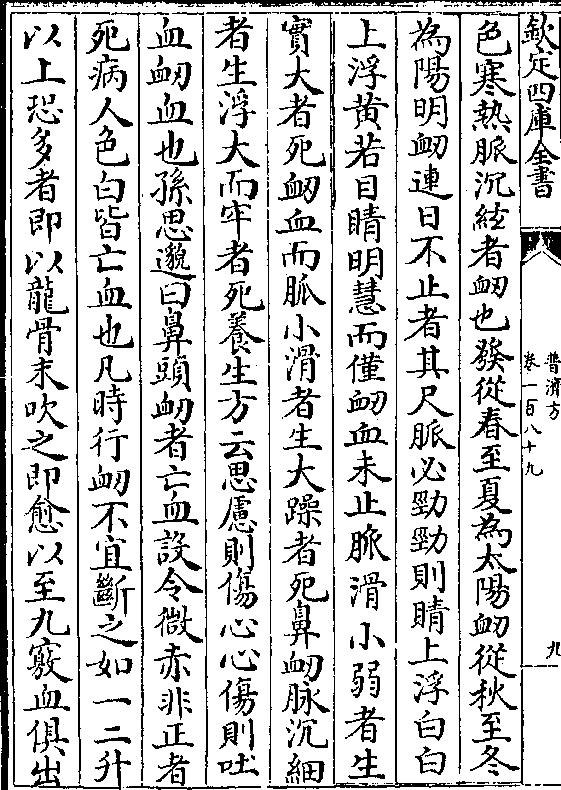 欽定四庫全書
普濟方
卷一百八十九
九
色寒熱脈沉絃者衂也發從春至夏為太陽衂從秋至冬
為陽明衂連日不止者其尺脈必勁勁則睛上浮白白
上浮黄若目睛明慧而僅衂血未止脈滑小弱者生
實大者死衂血而脈小滑者生大躁者死鼻衂脉沉細
者生浮大而牢者死養生方云思慮則傷心心傷則吐
血衂血也孫思邈曰鼻頭衂者亡血設令微赤非正者
死病人色白皆亡血也凡時行衂不宜斷之如一二升
以上恐多者即以龍骨末吹之即愈以至九竅血俱出